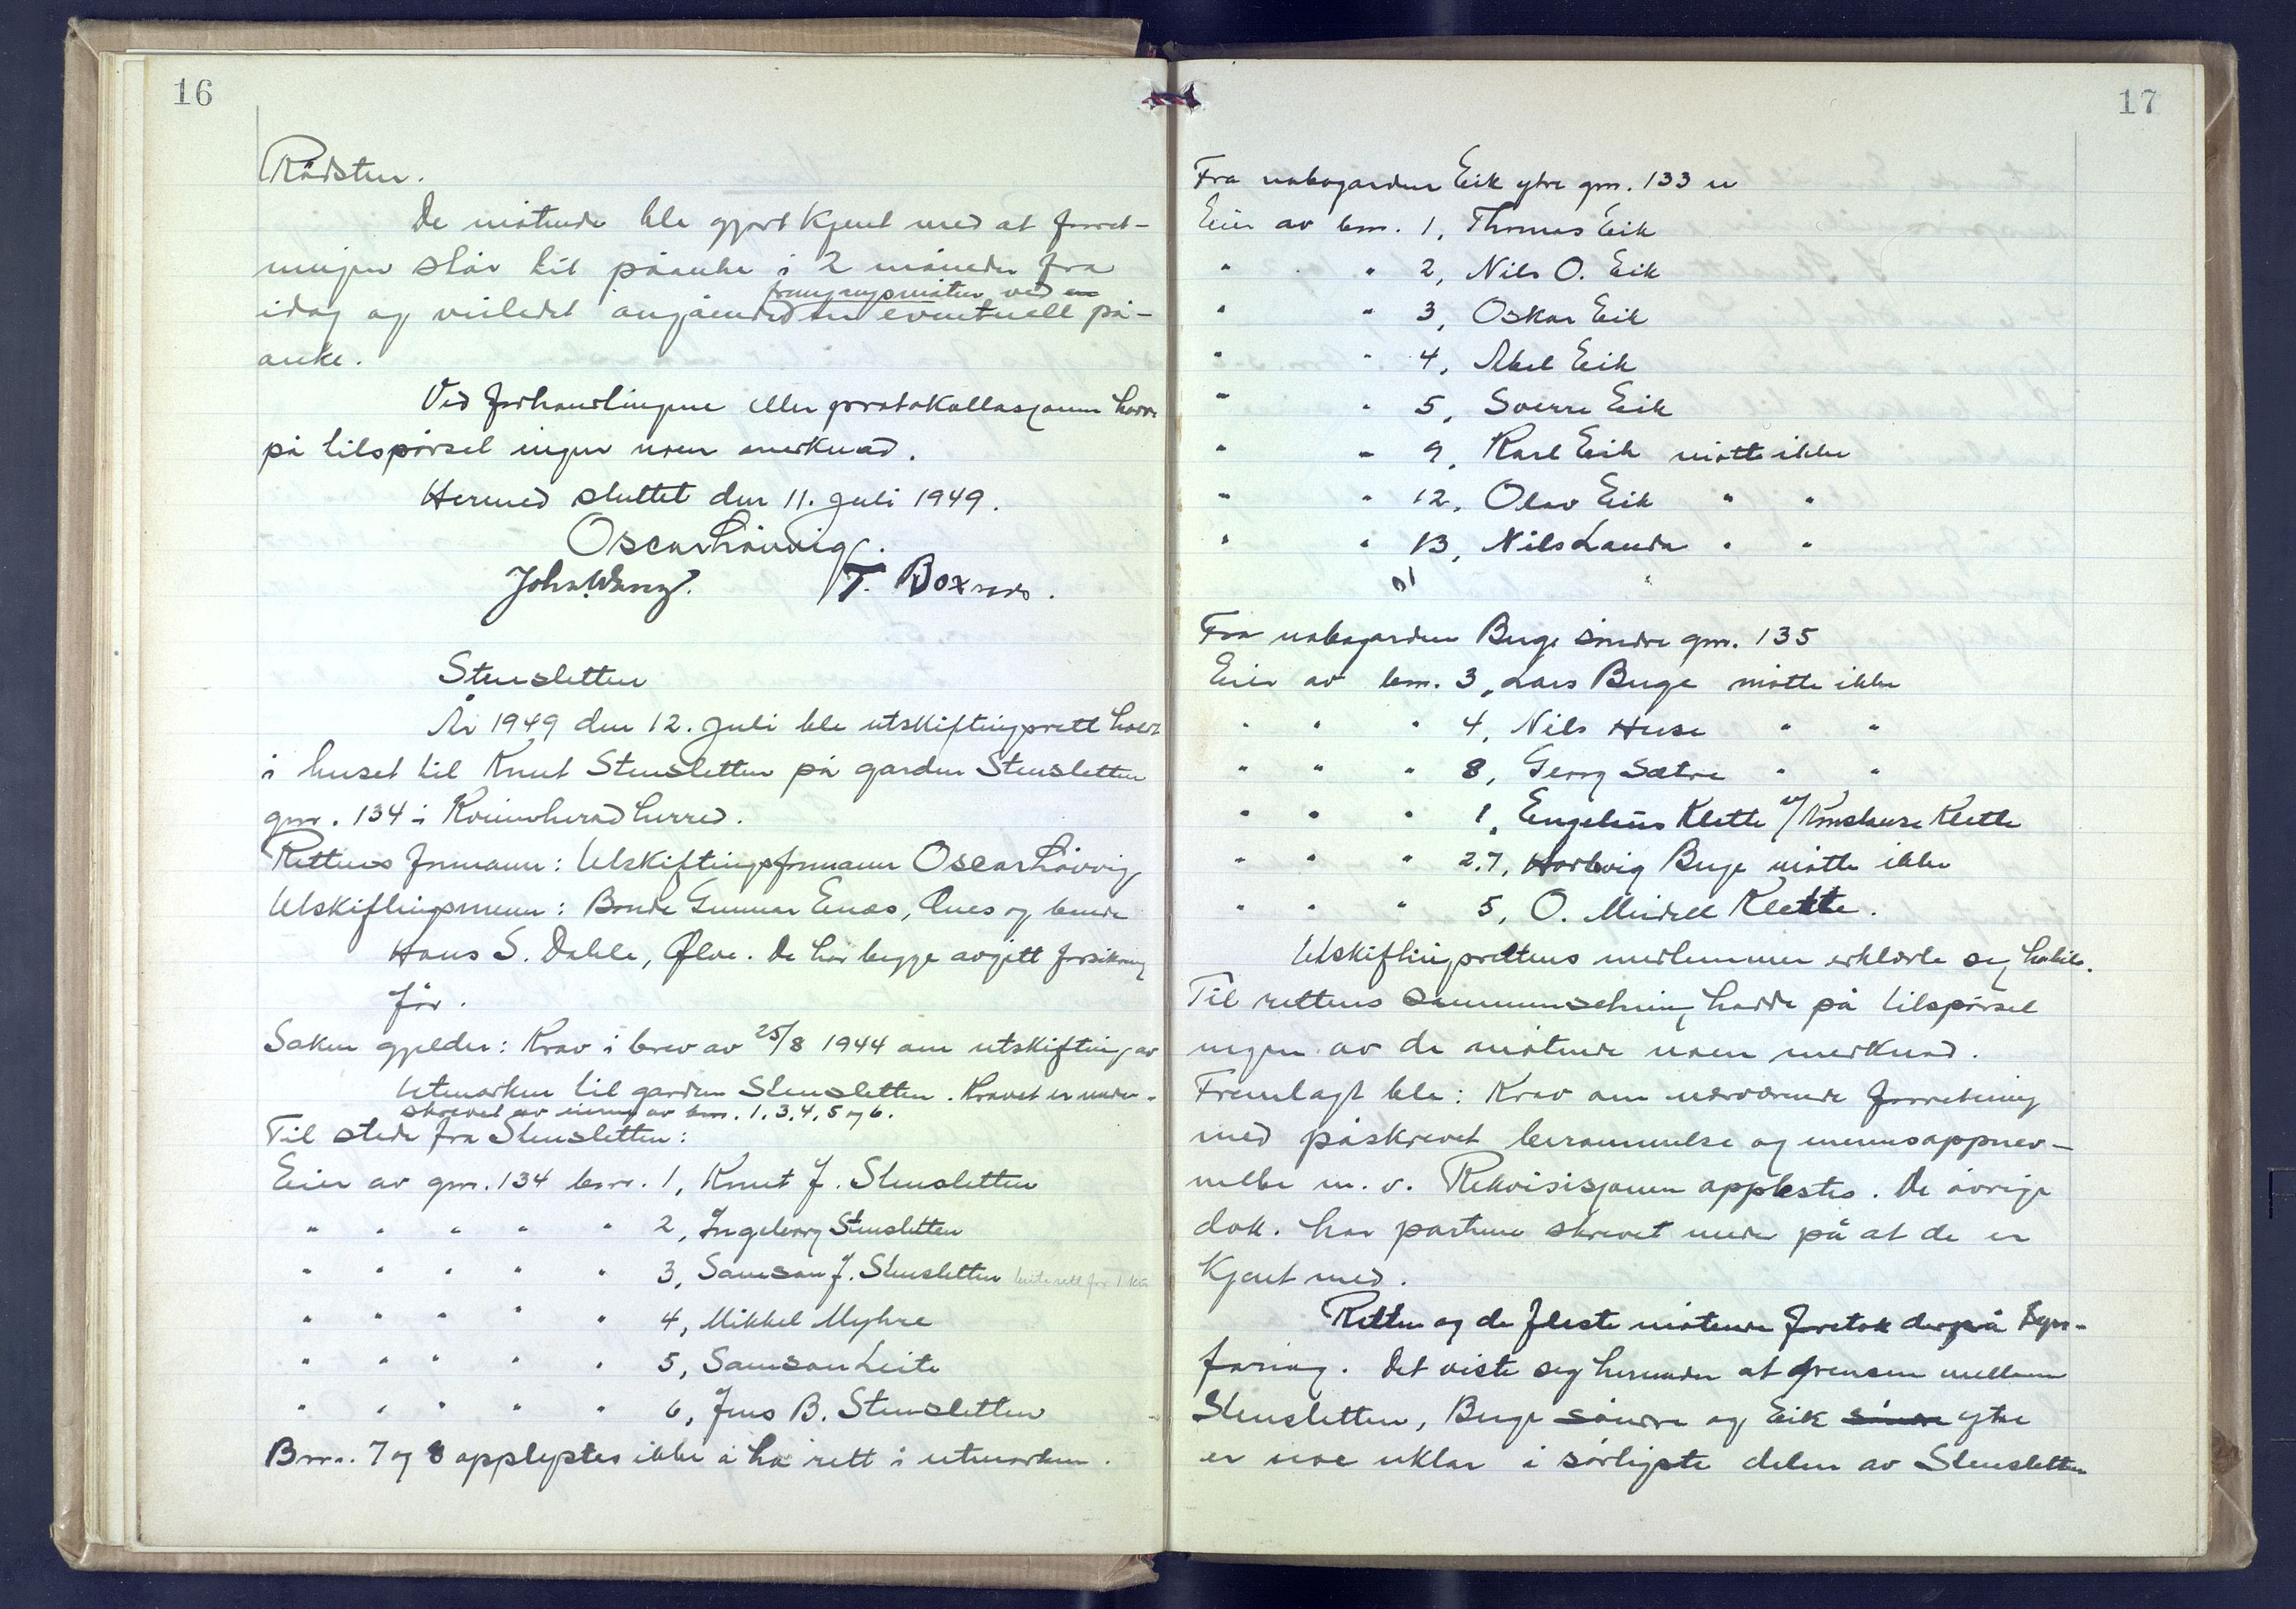 16
Rådsten.
De møtende ble gjort kjent med at forret-
ningen står til påanke i 2 måneder fra
fremgangsmåten ved
idag og veiledet angående en eventuell på-
anke.
Ved forhandlingene eller protokollasjonen hadde
på tilspørsel ingen noen merknad.
Hermed sluttet den 11. juli 1949.
Oscar Hövvig.
John Wang. T. Boxnes.
Stensletten
År 1949 den 12. juli ble utskiftingsrett holdt
i huset til Knut Stensletten på garden Stensletten
gnr. 134 i Kvinnherad herred.
Rettens formann: Utskiftingsformann Oscar Hövvig
Utskiftingsmenn: Bonde Gunnar Enæs, Ænes og bonde
Hans S. Dahle, Ølve. De har begge avgitt forsikring
før.
Saken gjelder: Krav i brev av 25/8 1944 om utskifting av
utmarken til garden Stensletten. Kravet er under-
skrevet av eierne av bnr. 1, 3, 4, 5 og 6.
Til stede fra Stensletten:
Eier av gnr. 134 bnr. 1, Knut J. Stensletten
" " " " " 2, Ingeborg Stensletten
" " " " " 3, Samson J. Stensletten beiterett for 1 ku
" " " " " 4, Mikkel Myhre
" " " " " 5, Samson Leite
" " " " " 6, Jens B. Stensletten
Bnr. 7 og 8 opplystes ikke å ha rett i utmarken.
17
Fra nabogarden Eik ytre gnr. 133 er
Eier av bnr. 1, Thomas Eik
" " 2, Nils O. Eik
" " 3, Oskar Eik
" " 4, Abel Eik
" " 5, Sverre Eik
" " 9, Karl Eik møtte ikke
" " 12, Olav Eik " "
" " 13, Nils Landa " "
Fra nabogarden Berge søndre gnr. 135
Eier av bnr. 3, Lars Berge møtte ikke
" " " 4, Nils Huse " "
" " " 8, Georg Sætre " "
" " " 1, Engelius Klette v/ Klette
" " " 2.7, Hartvig Berge møtte ikke
" " " 5, O. Meidell Klette.
Utskiftingsrettens medlemmer erklærte seg habile.
Til rettens sammensetning hadde på tilspørsel
ingen av de møtende noen merknad.
Fremlagt ble: Krav om nærværende forretning
med påskrevet berammelse og mennsoppnev-
nelse m. v. Rekvisisjonen opplestes. De øvrige
dok. har partene skrevet under på at de er
kjent med.
Retten og de fleste møtende foretok derpå syn-
faring. Det viste seg herunder at grensen mellem
Stensletten, Berge søndre og Eik søndre ytre
er noe uklar i sørligste delen av Stensletten